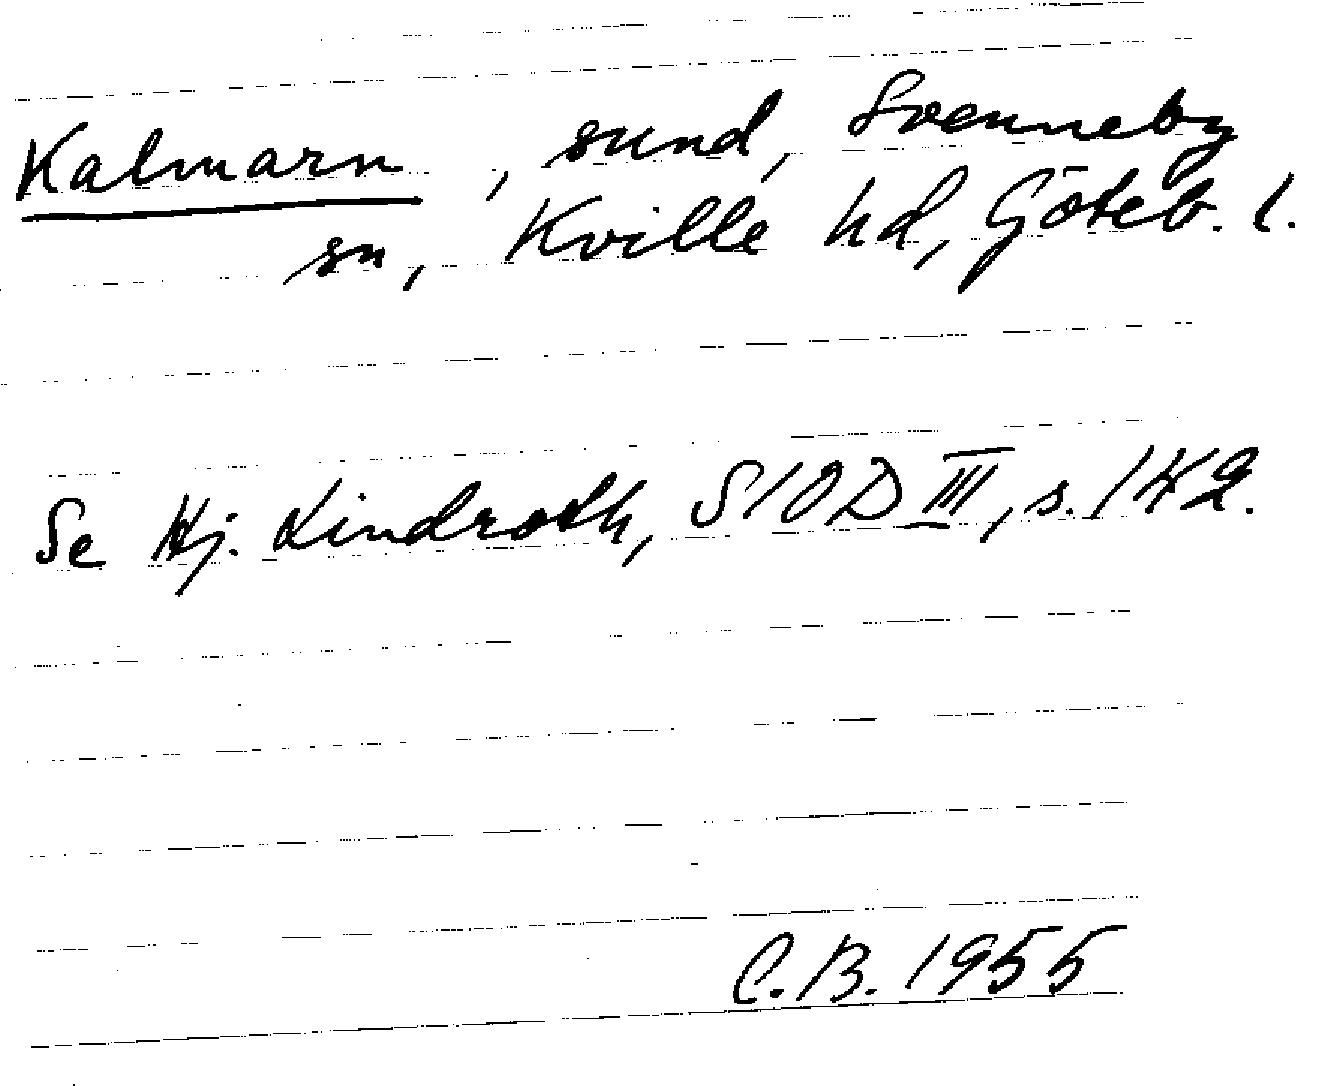 Kalmarn, sund, Svenneby
sn, Kville hd, Göteb. l.
Se Hj. Lindroth, SIOD III, s. 142.
C.B. 1955